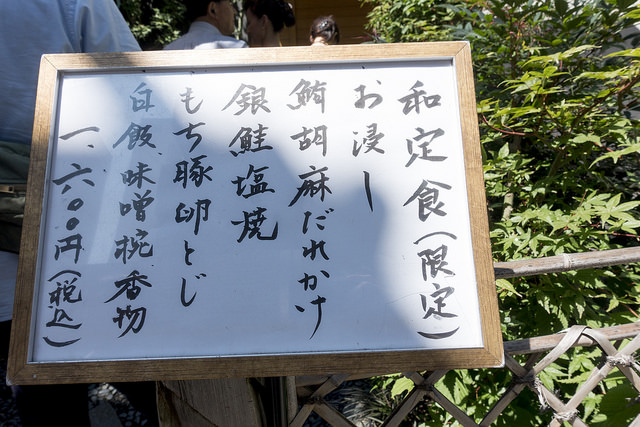 和定食(限定)
お浸し
鰆胡麻だれかけ
銀鮭塩焼
もち豚卵とじ
白飯 味噌椀 香物
一、六〇〇円(税込)